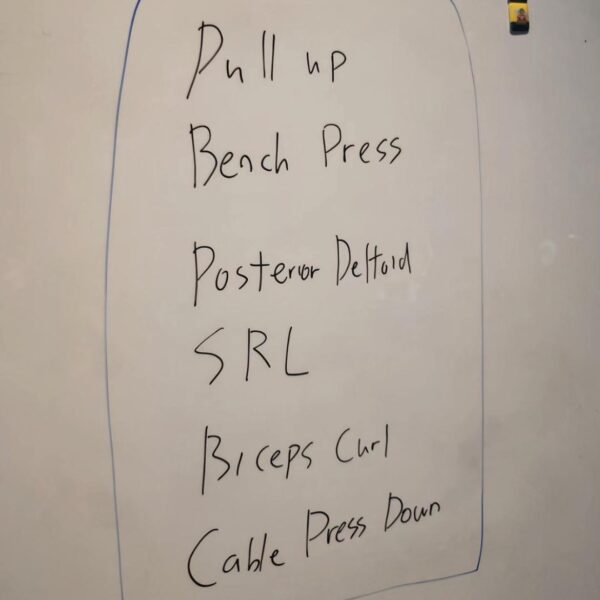 Pull up
Bench Press
Posterior Deltoid
SRL
Biceps Curl
Cable Press Down